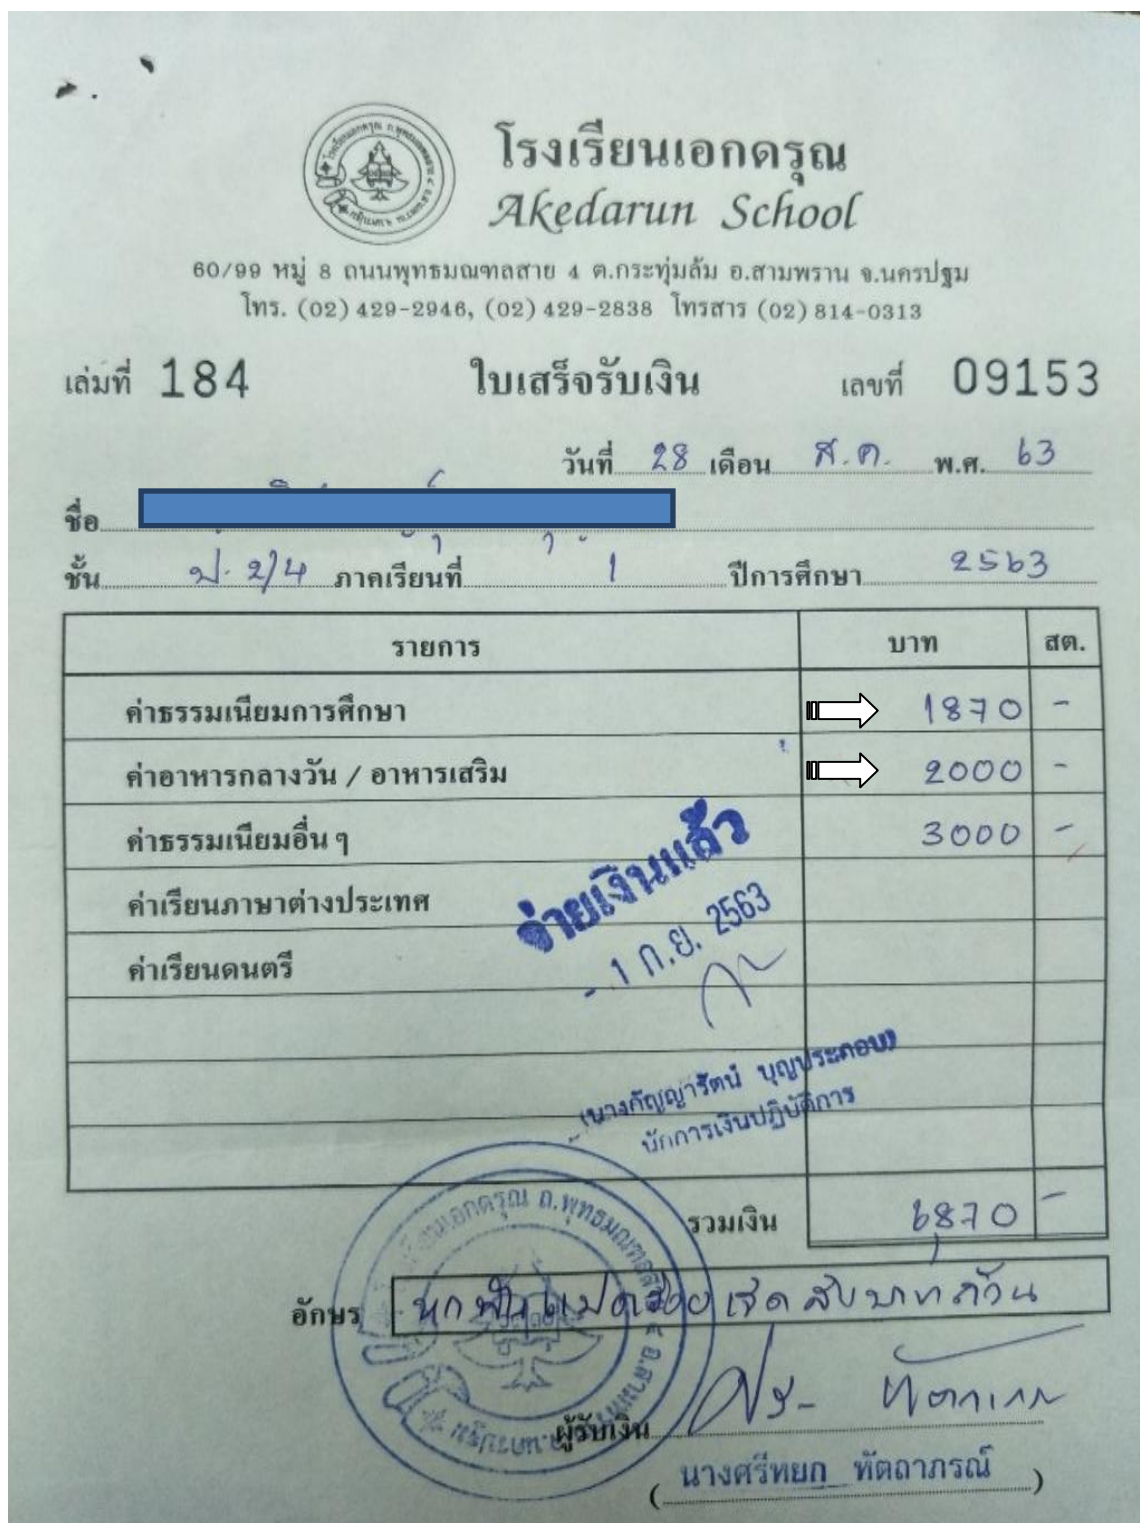 โรงเรียนเอกดรุณ
Akedarun School
60/99 หมู่ 8 ถนนพุทธมณฑลสาย 4 ต.กระทุ่มล้ม อ.สามพราน จ.นครปฐม
โทร. (02) 429-2946, (02) 429-2838 โทรสาร (02) 814-0313
เล่มที่ 184 ใบเสร็จรับเงิน เลขที่ 09153
วันที่ 28 เดือน ส.ค. พ.ศ. 63
ชื่อ
ชั้น ป.2/4 ภาคเรียนที่ 1 ปีการศึกษา 2563
รายการ บาท สต.
ค่าธรรมเนียมการศึกษา 1870 -
ค่าอาหารกลางวัน / อาหารเสริม 2000 -
ค่าธรรมเนียมอื่น ๆ 3000 -
ค่าเรียนภาษาต่างประเทศ
ค่าเรียนดนตรี
จ่ายเงินแล้ว
- 1 ก.ย. 2563
(นางกัญญารัตน์ บุญประกอบ)
นักการเงินปฏิบัติการ
รวมเงิน 6870 -
อักษร หกพันแปดร้อยเจ็ดสิบบาทถ้วน
ผู้รับเงิน
(นางศรีหยก ทัตถาภรณ์)